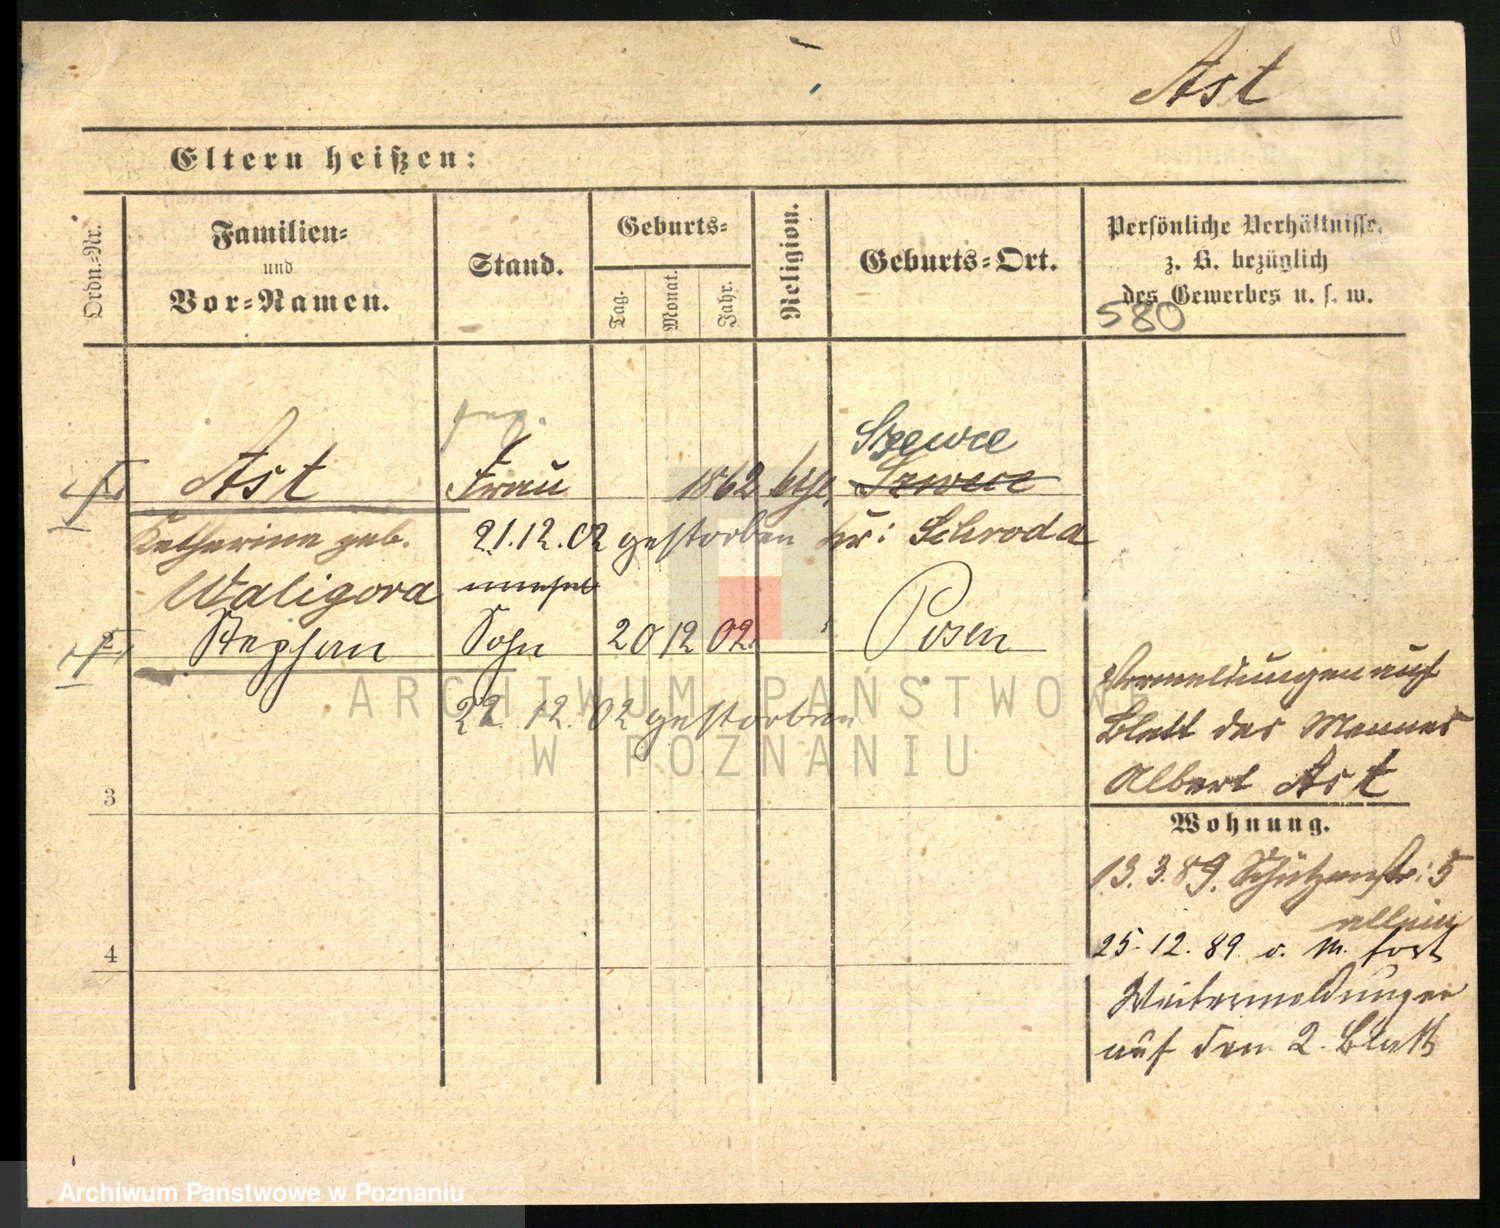 Ast
Eltern heißen:
Ordn.-Nr.
Familien-
und
Vor-Namen.
Stand.
Geburts-
Tag.
Monat.
Jahr.
Religion.
Geburts-Ort.
Persönliche Verhältnisse,
z. B. bezüglich
des Gewerbes u. s. w.
580
gez.
Szewce
1 Ast Frau 1862 kth. Szewce
Katharina geb. 21.12.02 gestorben Kr: Schroda
Waligora
2 Stephan Sohn 20 12 02 Posen
22.12.02 gestorben
Vermeldungen auf
Blatt des Mannes
Albert Ast
3
Wohnung.
13.3.89. Schützenstr: 5
allein
4
25.12.89. v. M. fort
Weitermeldungen
auf dem 2. Blatt
ARCHIWUM PAŃSTWOWE
W POZNANIU
Archiwum Państwowe w Poznaniu